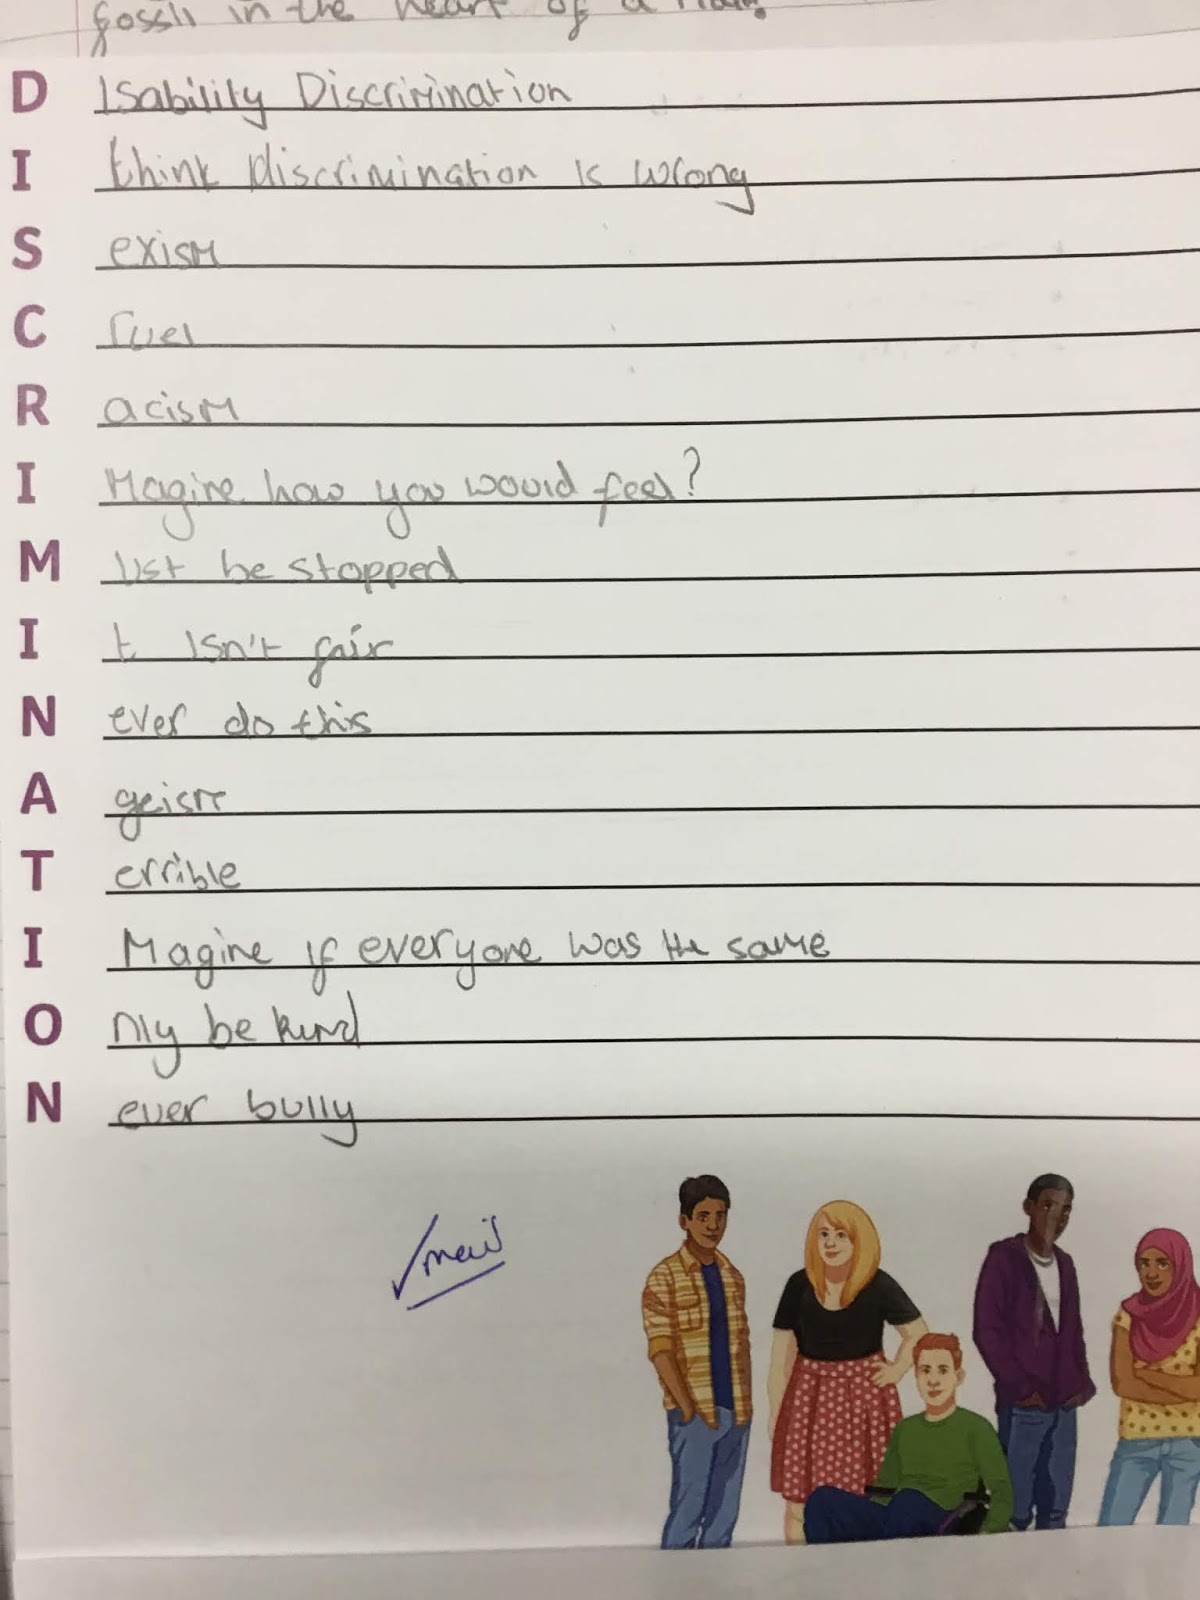 fossil in the heart of a
D isability Discrimination
I think discrimination is wrong
S exism
C ruel
R acism
I magine how you would feel?
M ust be stopped
I t isn't fair
N ever do this
A geism
T errible
I magine if everyone was the same
O nly be kind
N ever bully